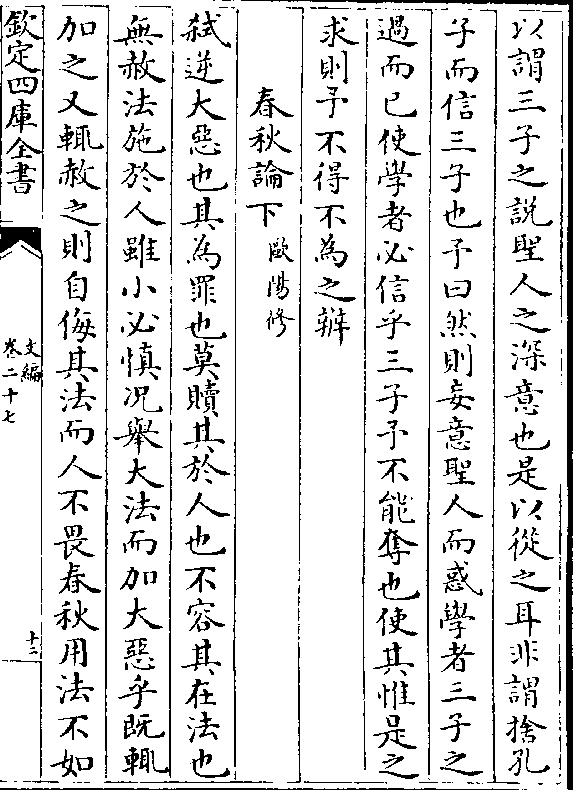 以謂三子之說聖人之深意也是以從之耳非謂捨孔
子而信三子也予曰然則妄意聖人而惑學者三子之
過而已使學者必信乎三子予不能奪也使其惟是之
求則予不得不為之辨
春秋論下 歐陽修
弑逆大惡也其為罪也莫贖其於人也不容其在法也
無赦法施於人雖小必慎况舉大法而加大惡乎既輒
加之又輒赦之則自侮其法而人不畏春秋用法不如
欽定四庫全書
文編
卷二十七
十二